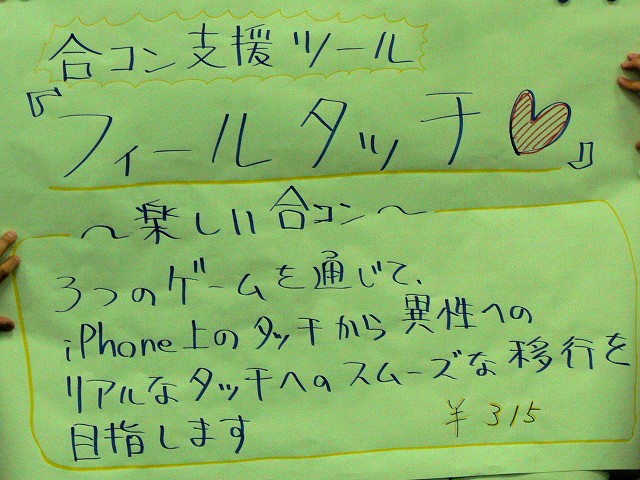 合コン支援ツール
『フィールタッチ♥』
〜楽しい合コン〜
3つのゲームを通じて、
iPhone上のタッチから異性への
リアルなタッチへのスムーズな移行を
目指します
¥315